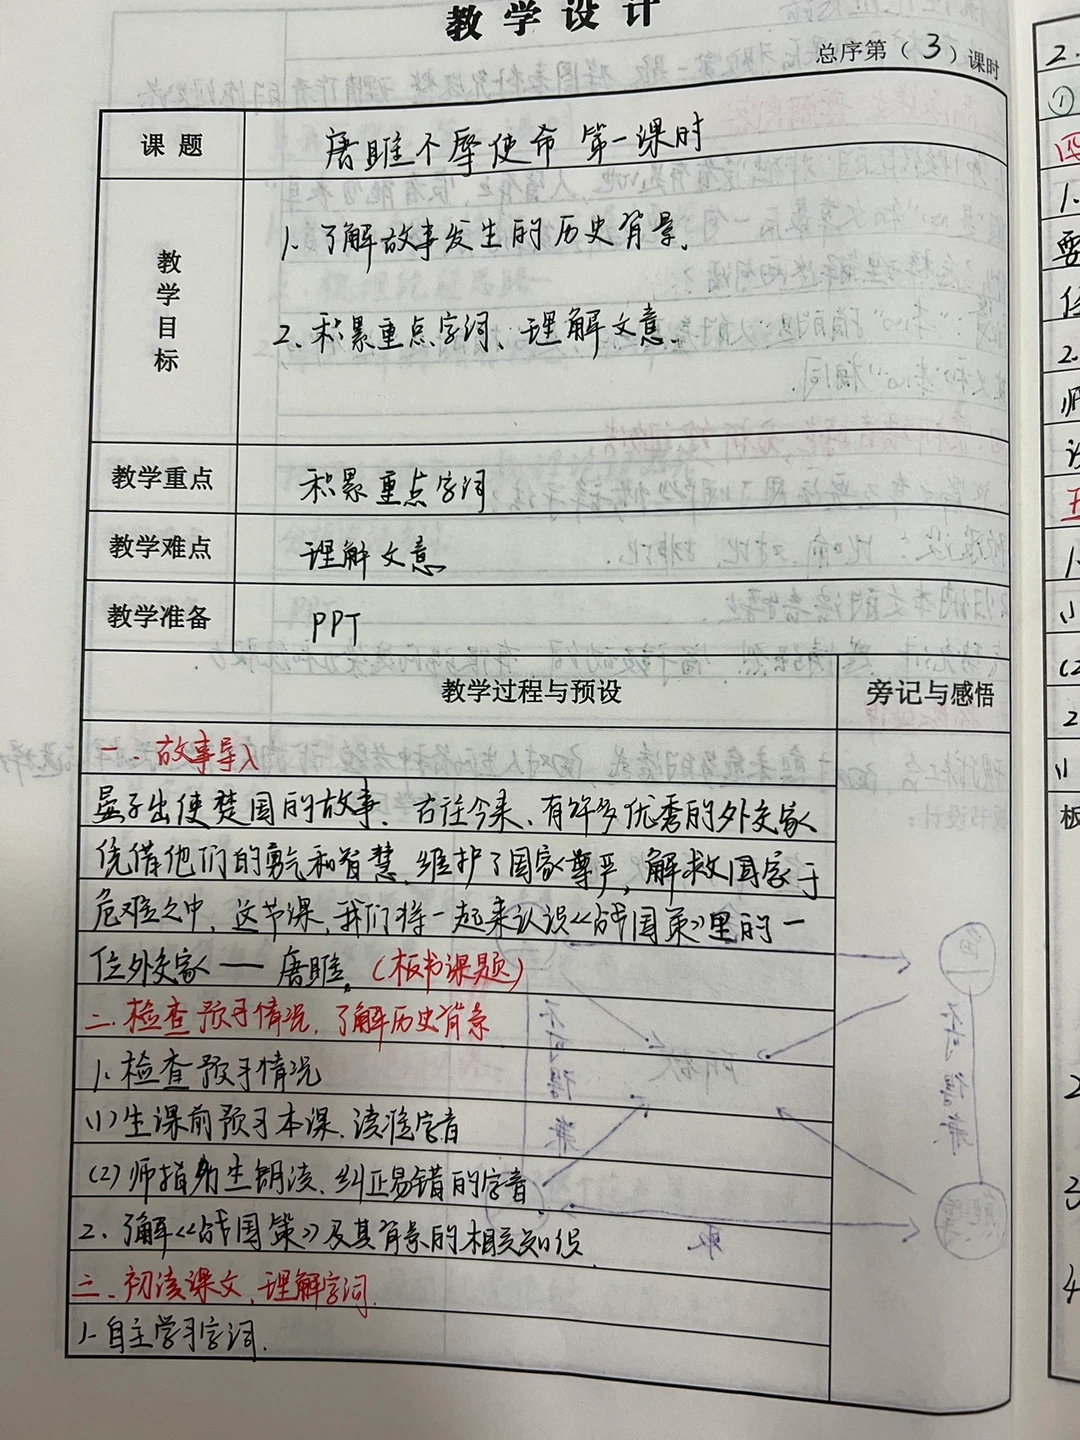 教学设计
总序第（3）课时
课题 唐雎不辱使命 第一课时
教学目标
1. 了解故事发生的历史背景.
2. 积累重点字词、理解文意.
教学重点 积累重点字词
教学难点 理解文意
教学准备 PPT
教学过程与预设 旁记与感悟
一. 故事导入
晏子出使楚国的故事. 古往今来、有许多优秀的外交家
凭借他们的勇气和智慧, 维护了国家尊严, 解救国家于
危难之中, 这节课, 我们将一起来认识《战国策》里的一
位外交家——唐雎。(板书课题)
二. 检查预习情况, 了解历史背景
1. 检查预习情况
(1) 生课前预习本课、读准字音
(2) 师指名生朗读、纠正易错的字音.
2、了解《战国策》及其背景的相关知识
三. 初读课文, 理解字词.
1. 自主学习字词.
2.
①
四
1.
要
2.
师
1.
(2
2
板
2
3
4